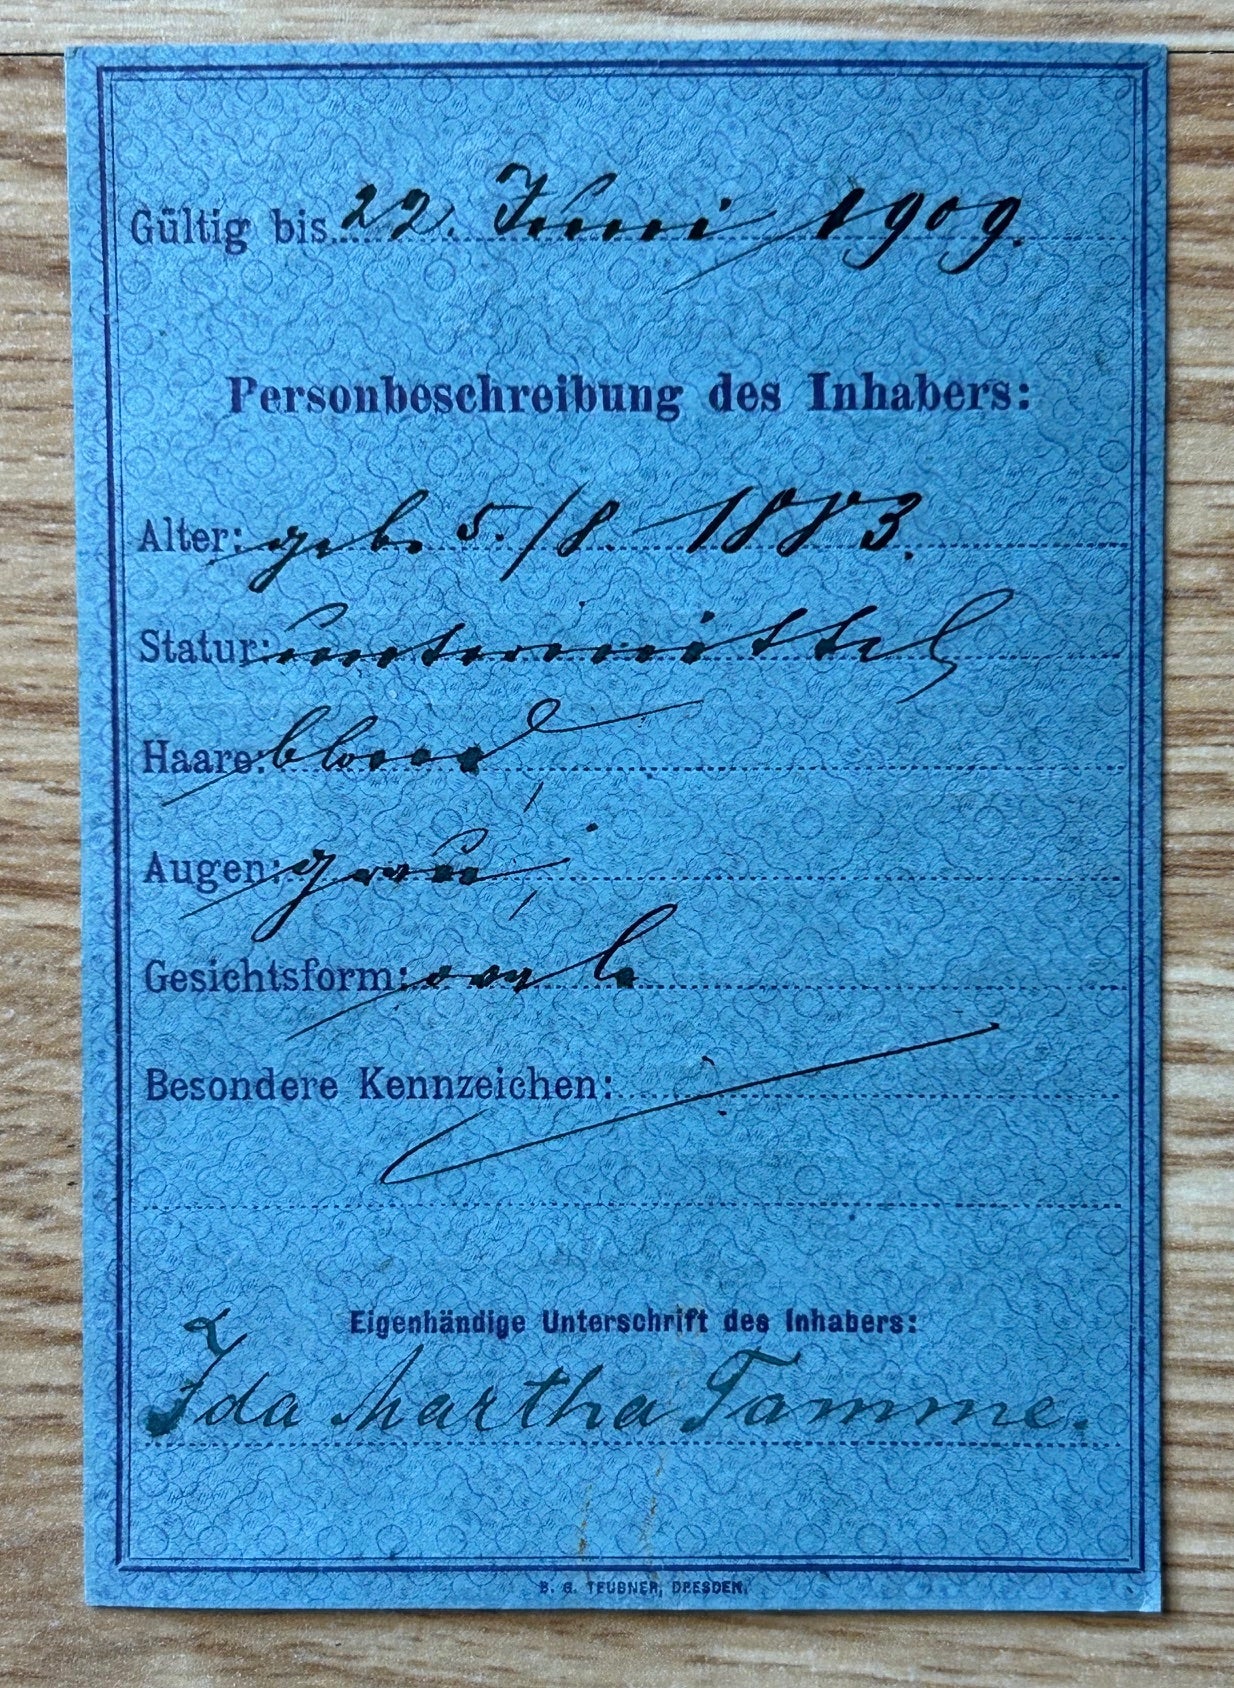 Gültig bis 22. Juni 1909.
Personbeschreibung des Inhabers:
Alter: geb. 5./8. 1883.
Statur: untermittel
Haare: blond,
Augen: grau,
Gesichtsform: oval.
Besondere Kennzeichen:
Eigenhändige Unterschrift des Inhabers:
Ida Martha Tamme.
B. G. TEUBNER, DRESDEN.